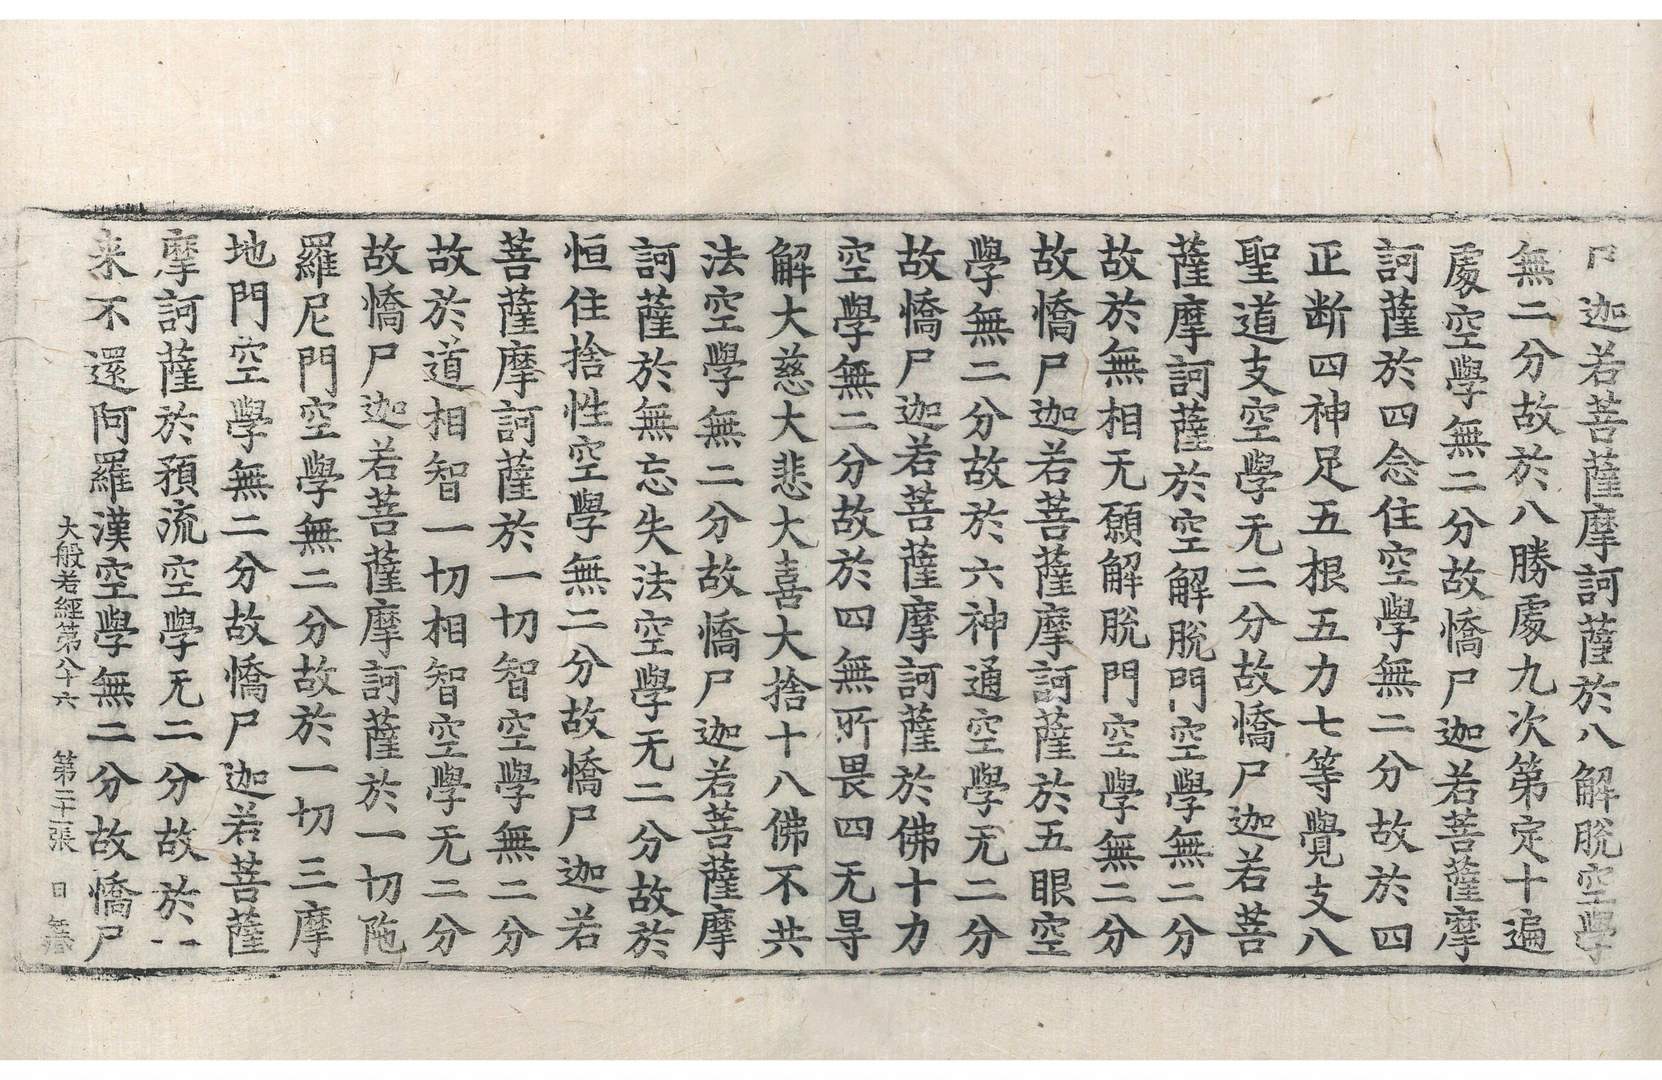 尸迦若菩薩摩訶薩於八解脫空學
無二分故於八勝處九次第定十遍
處空學無二分故憍尸迦若菩薩摩
訶薩於四念住空學無二分故於四
正断四神足五根五力七等覺支八
聖道支空學无二分故憍尸迦若菩
薩摩訶薩於空解脫門空學無二分
故於無相无願解脫門空學無二分
故憍尸迦若菩薩摩訶薩於五眼空
學無二分故於六神通空學无二分
故憍尸迦若菩薩摩訶薩於佛十力
空學無二分故於四無所畏四无㝵
解大慈大悲大喜大捨十八佛不共
法空學無二分故憍尸迦若菩薩摩
訶薩於無忘失法空學无二分故於
恒住捨性空學無二分故憍尸迦若
菩薩摩訶薩於一切智空學無二分
故於道相智一切相智空學无二分
故憍尸迦若菩薩摩訶薩於一切陁
羅尼門空學無二分故於一切三摩
地門空學無二分故憍尸迦若菩薩
摩訶薩於預流空學无二分故於一
来不還阿羅漢空學無二分故憍尸
大般若經第八十六 第二十一張 日